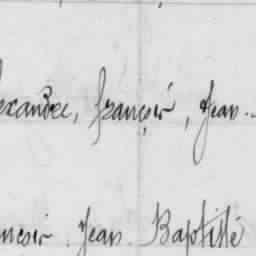 exandre, françois, Jean-
ncois Jean Baptiste